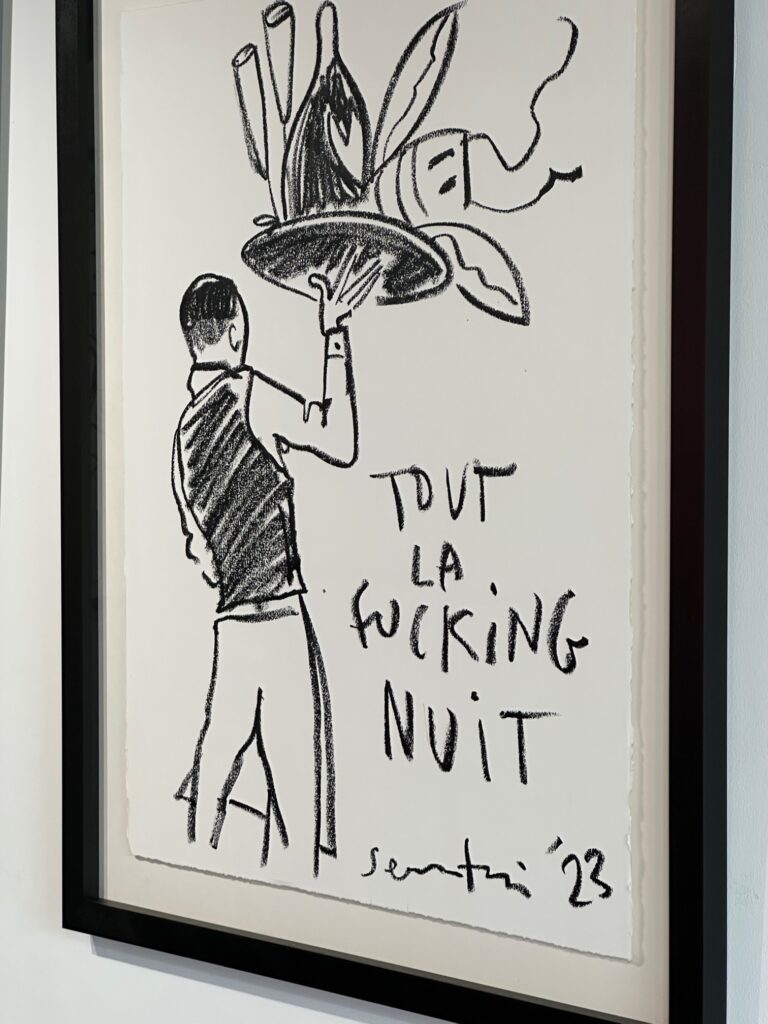 TOUT
LA
FUCKING
NUIT
'23